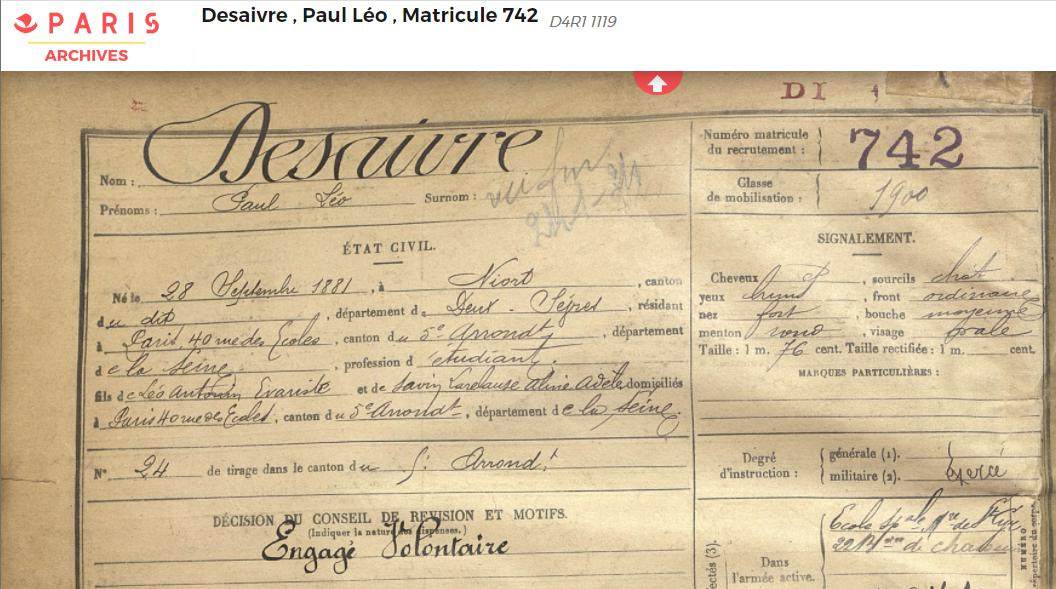 PARIS
ARCHIVES
Desaivre , Paul Léo , Matricule 742 D4R1 1119
DI
Nom : Desaivre
Prénoms : Paul Léo Surnom :
Numéro matricule
du recrutement : 742
Classe
de mobilisation : 1900
ÉTAT CIVIL.
Né le 28 Septembre 1881, à Niort, canton
du dit, département de Deux-Sèvres, résidant
à Paris, 40 rue des Ecoles, canton du 5e Arrondt, département
de la Seine, profession d'étudiant.
fils de Léo Antonin Evariste et de Savry Adèle domiciliés
à Paris 40 rue des Ecoles, canton du 5e Arrondt, département de la Seine.
N° 24 de tirage dans le canton du Arrondt
DÉCISION DU CONSEIL DE REVISION ET MOTIFS.
(Indiquer la nature des dispenses.)
Engagé Volontaire
SIGNALEMENT.
Cheveux et, sourcils chat.
yeux bruns, front ordinaire
nez fort, bouche moyenne
menton rond, visage ovale
Taille : 1 m. 76 cent. Taille rectifiée : 1 m. cent.
MARQUES PARTICULIÈRES :
Degré
d'instruction :
générale (1).
militaire (2). Exercé
Dans
l'armée active.
Ecole Spale Mre de St Cyr
de chasseurs
NUMÉRO
répertoire du corps.